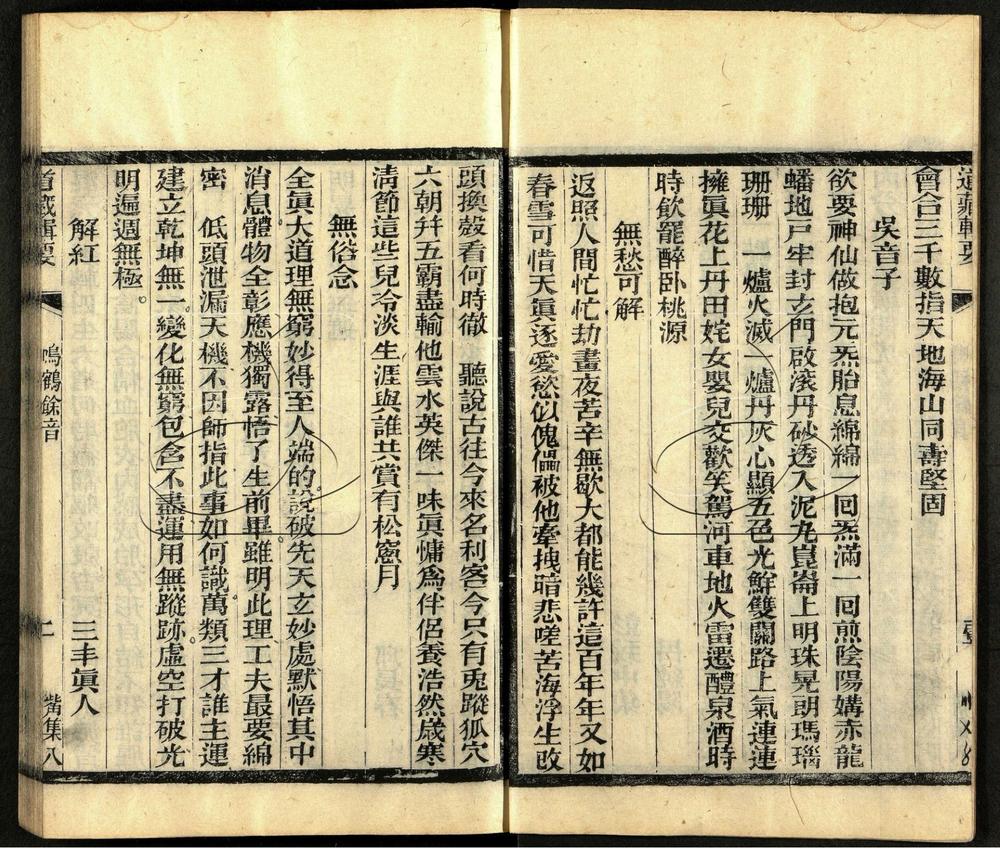 道藏輯要
會合三千數指天地海山同壽堅固
吳音子
欲要神仙做抱元炁胎息綿綿一囘炁滿一囘煎陰陽媾赤龍
蟠地戸牢封玄門啟滾丹砂透入泥丸崑崙上明珠晃朗瑪瑙
珊珊 一爐火滅一爐丹灰心顯五色光鮮雙關路上氣連連
擁眞花上丹田姹女嬰兒交歡笑駕河車地火雷遷醴泉酒時
時飲罷醉卧桃源
無愁可解
返照人間忙忙劫晝夜苦辛無歇大都能幾許這百年年又如
春雪可惜天眞逐愛慾似傀儡被他牽拽暗悲嗟苦海浮生改
頭換殼看何時徹 聽說古往今來名利客今只有兎蹤狐穴
六朝幷五霸盡輸他雲水英傑一味眞慵爲伴侣養浩然歲寒
淸節這些兒冷淡生涯與誰共賞有松窻月
無俗念
全眞大道理無窮妙得至人端的說破先天玄妙處默悟其中
消息體物全彰應機獨露悟了生前畢雖明此理工夫最要綿
密 低頭泄漏天機不因師指此事如何識萬類三才誰主運
建立乾坤無一變化無窮包含不盡運用無蹤跡虛空打破光
明遍週無極。
解紅 三丰眞人
道藏輯要 鳴鶴餘音 二 觜集八